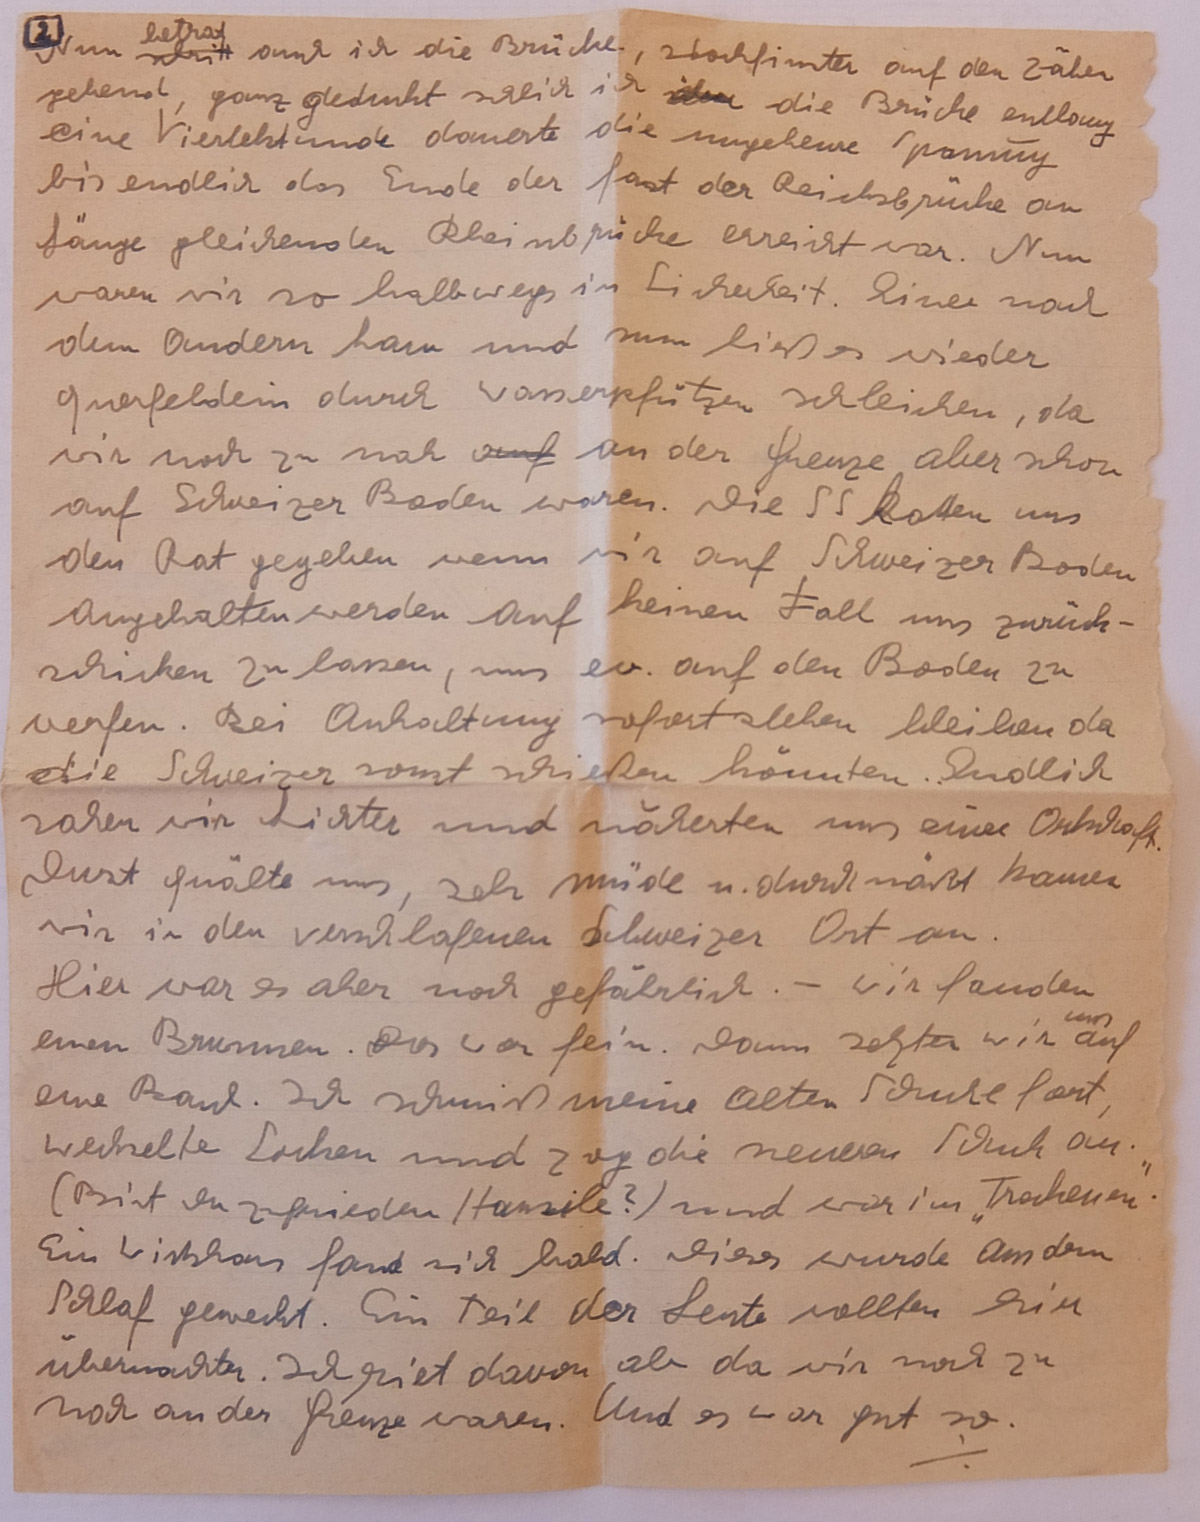 2
Nun betrat auch ich die Brücke, stockfinster auf den Zähen
gehend, ganz geduckt schlich ich die Brücke entlang
eine Viertelstunde dauerte die ungeheure Spannung
bis endlich das Ende der fast der Reichsbrücke an
Länge gleichenden Rheinbrücke erreicht war. Nun
waren wir so halbwegs in Sicherheit. Einer nach
dem Andern kam und nun hieß es wieder
querfeldein durch Wasserpfützen schleichen, da
wir noch zu nah auf an der Grenze aber schon
auf Schweizer Boden waren. Die SS hatten uns
den Rat gegeben wenn wir auf Schweizer Boden
angehalten werden auf keinen Fall uns zurück-
schicken zu lassen, uns ev. auf den Boden zu
werfen. Bei Anhaltung sofort stehen bleiben da
die Schweizer sonst schießen könnten. Endlich
sahen wir Lichter und näherten uns einer Ortschaft.
Durst quälte uns, sehr müde u. durchnäßt kamen
wir in den verschlafenen Schweizer Ort an.
Hier war es aber noch gefährlich. – Wir fanden
einen Brunnen. Das war fein. Dann setzten wir uns auf
eine Bank. Ich schmiß meine alten Schuhe fort,
wechselte Socken und zog die neueren Schuh an.
(Bist du zufrieden Hansile?) und war im „Trockenen".
Ein Wirtshaus fand sich bald. Dieses wurde aus dem
Schlaf geweckt. Ein Teil der Leute wollten hier
übernachten. Ich riet davon ab da wir noch zu
noh an der Grenze waren. Und es war gut so.